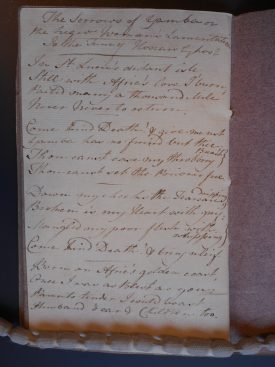 The Sorrows of Yamba or
the Negro Woman's Lamentation
To the Tune of Hosiers Ghost
In St Lucia's distant isle
Still with Africs love I burn
Parted many a thousand mile
Never Never to return
Come kind Death! & give me rest
Yamba has no friend but thee
Thou canst ease my throbbing
Thou canst set the Prisoner free
Down my cheeks the Tears are
Broken is my Heart with grief
Mangled my poor flesh with
whipping
Come kind Death! & bring relief
Born on Afric's golden coast
Once I was as blest as you
Parents tender I could boast
Husband dear & Children too